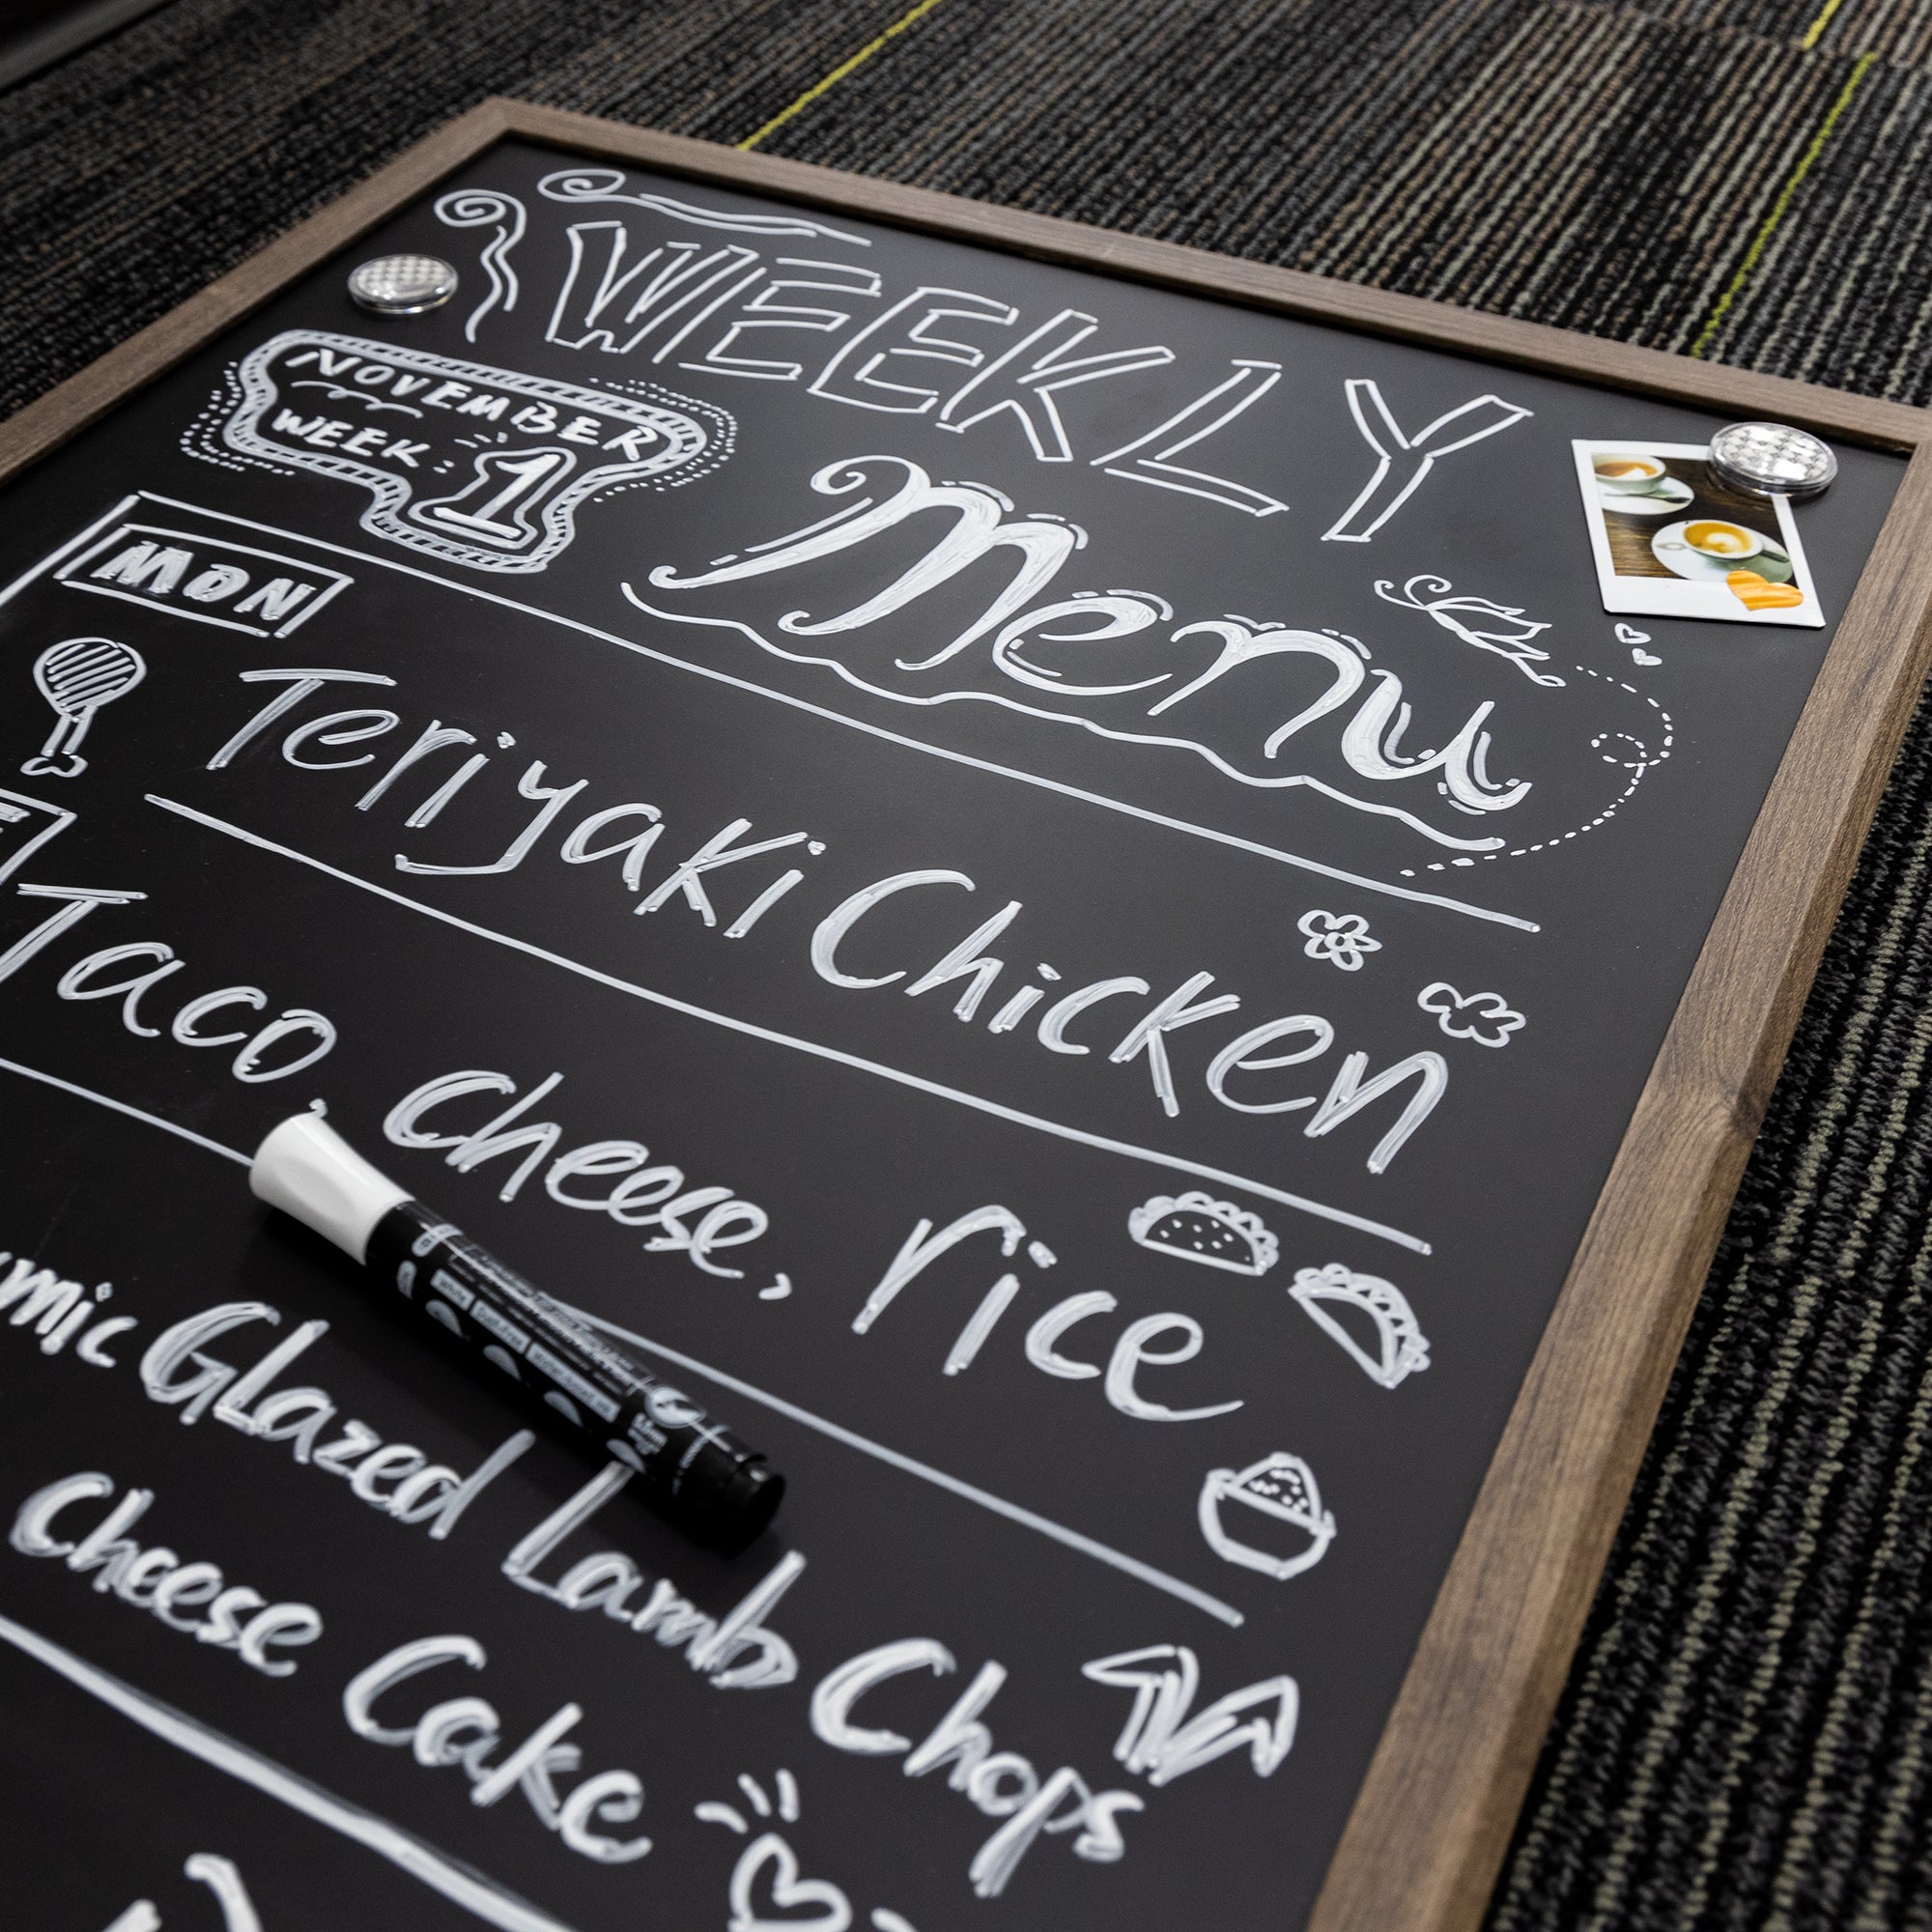 WEEKLY
Menu
NOVEMBER
WEEK: 1
MON
Teriyaki Chicken
Taco, Cheese, rice
Glazed Lamb Chops
Cheese Cake